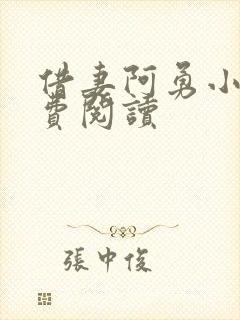 借妻阿勇小
費閱讀
張中俊